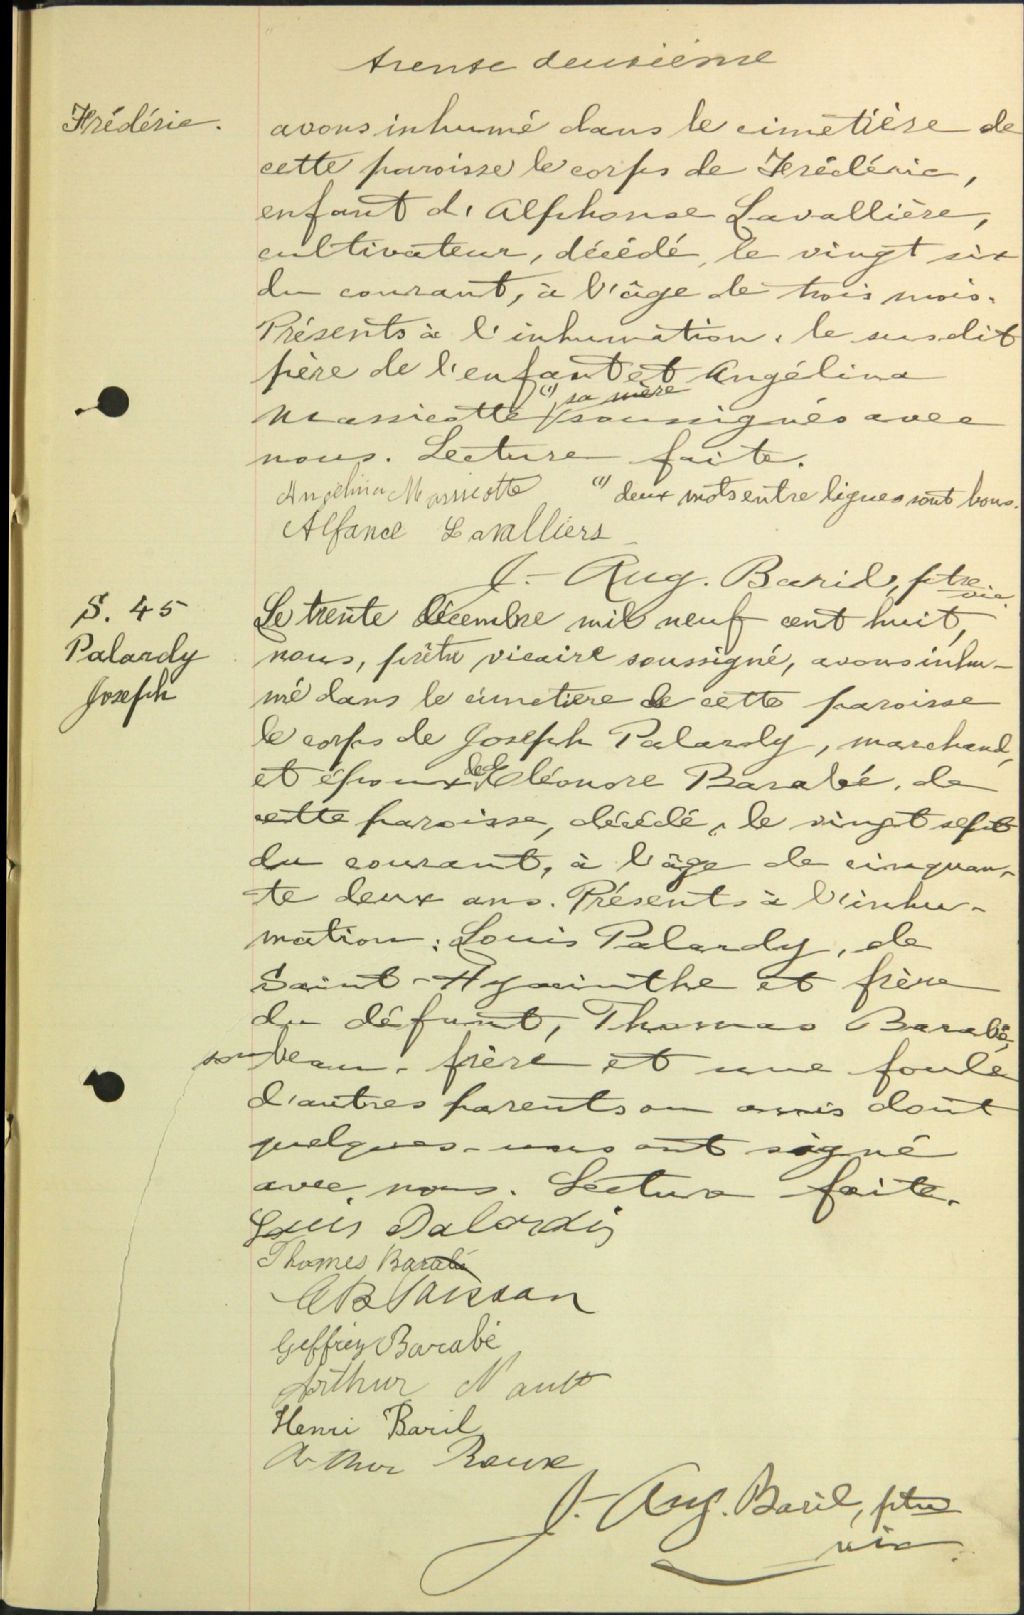 trente deuxième
Frédéric.
avons inhumé dans le cimetière de
cette paroisse le corps de Frédéric,
enfant d'Alphonse Lavallière,
cultivateur, décédé, le vingt six
du courant, à l'âge de trois mois.
Présents à l'inhumation, le susdit
père de l'enfant et Angélina
(1) sa mère
Massicotte soussignés avec
nous. Lecture faite.
Angélina Massicotte (1) deux mots entre lignes sont bons.
Alfance Lavalliers
J.-Aug. Baril, ptre
vic.
S. 45
Palardy
Joseph
Le trente décembre mil neuf cent huit,
nous, prêtre vicaire soussigné, avons inhu-
mé dans le cimetière de cette paroisse
le corps de Joseph Palardy, marchand,
et époux de Eléonore Barabé, de
cette paroisse, décédé, le vingt sept
du courant, à l'âge de cinquan-
te deux ans. Présents à l'inhu-
mation: Louis Palardy, de
Saint-Hyacinthe et frère
du défunt, Thomas Barabé,
son beau-frère et une foule
d'autres parents ou amis dont
quelques-uns ont signé
avec nous. Lecture faite.
Louis Palardy
Thomes Barabé
Geffrey Barabé
Arthur Nault
Henri Baril
Arthur Roux
J.-Aug. Baril, ptre
vic.